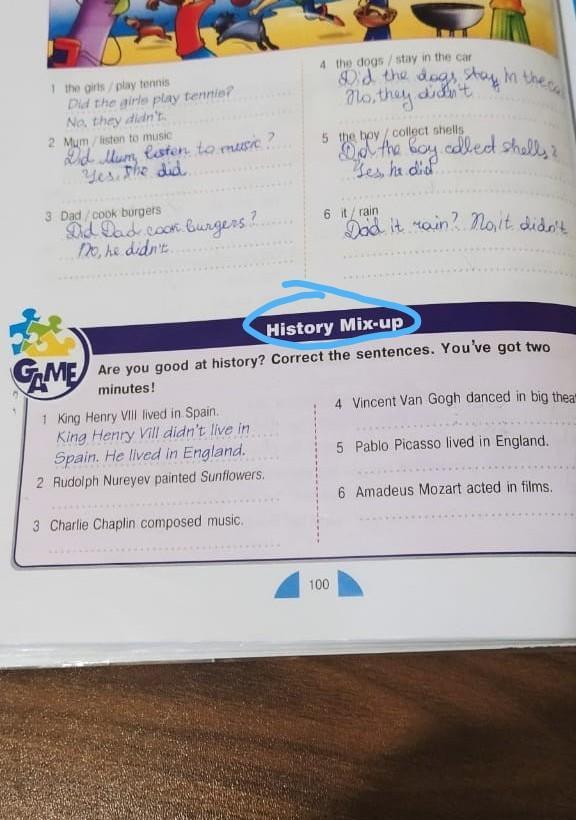 1 the girls / play tennis
Did the girls play tennis?
No, they didn't.
2 Mum / listen to music
Did Mum listen to music?
Yes, she did
3 Dad / cook burgers
Did Dad cook burgers?
No, he didn't.
4 the dogs / stay in the car
Did the dogs stay in the ca
No, they didn't
5 the boy / collect shells
Did the boy collect shells?
Yes, he did
6 it / rain
Did it rain? No, it didn't
GAME
History Mix-up
Are you good at history? Correct the sentences. You've got two
minutes!
1 King Henry VIII lived in Spain.
King Henry VIII didn't live in
Spain. He lived in England.
2 Rudolph Nureyev painted Sunflowers.
3 Charlie Chaplin composed music.
4 Vincent Van Gogh danced in big thea
5 Pablo Picasso lived in England.
6 Amadeus Mozart acted in films.
100